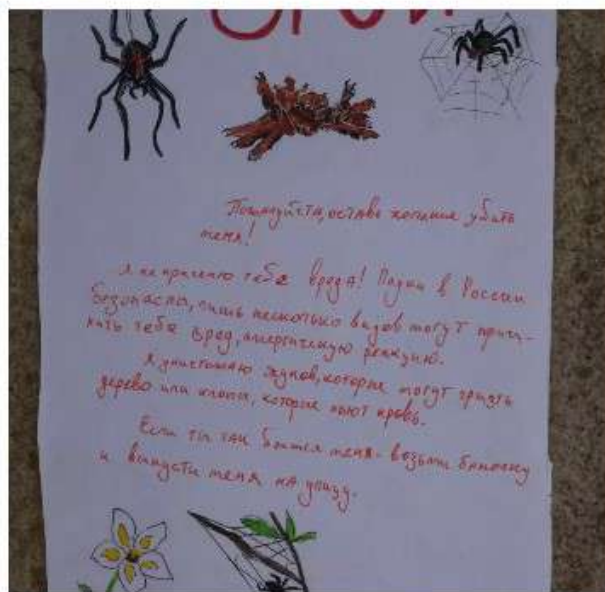 Пожалуйста, оставь желание убить
меня!
Я не причиню тебе вреда! Пауки в России
безопасны, лишь несколько видов могут причи-
нить тебе вред, аллергическую реакцию.
Я уничтожаю жуков, которые могут грызть
дерево или клопы, которые пьют кровь.
Если ты так боишься меня - возьми баночку
и выпусти меня на улицу.